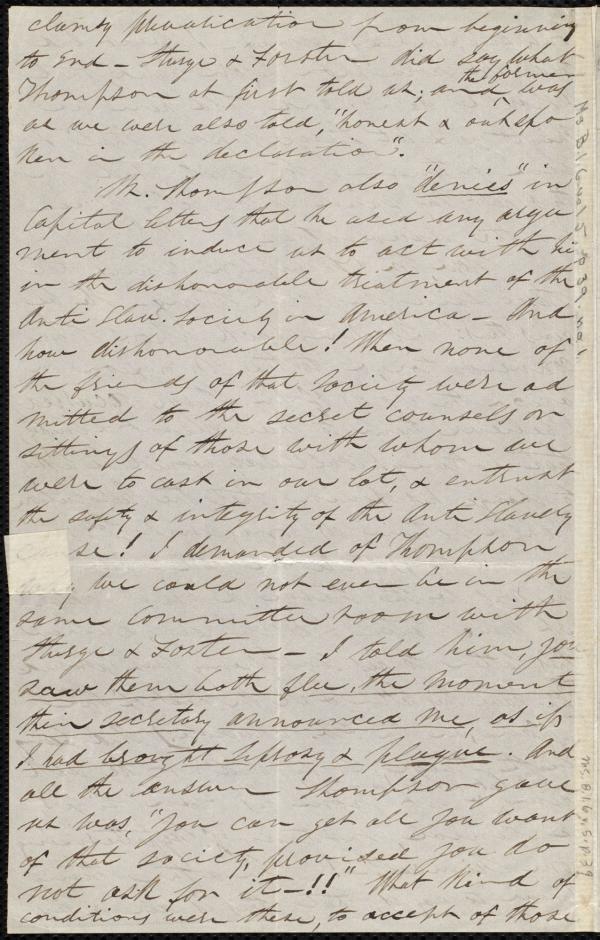 clumsy prevarication from beginning
to End - Sturge & Forster did say what
Thompson at first told us; and the former was
as we were also told, "honest & outspo
ken in the declaration".
Mr. Thompson also "denies" in
Capital letters that he used any argu
ment to induce us to act with hi
in the dishonorable treatment of the
Anti Slav. Society in America - And
how dishonorable! When none of
the friends of that Society were ad
mitted to the secret counsels or
sittings of those with whom we
were to cast in our lot, & entrust
the safety & integrity of the Anti Slavery
se! I demanded of Thompson
we could not even be in the
same Committee room with
Sturge & Forster - I told him, you
saw them both flee, the moment
their secretary announced me, as if
I had brought Leprosy & plague. And
all the answer Thompson gave
us was, "you can get all you want
of that society, provised you do
not ask for it -!!" What kind of
conditions were these, to accept of those